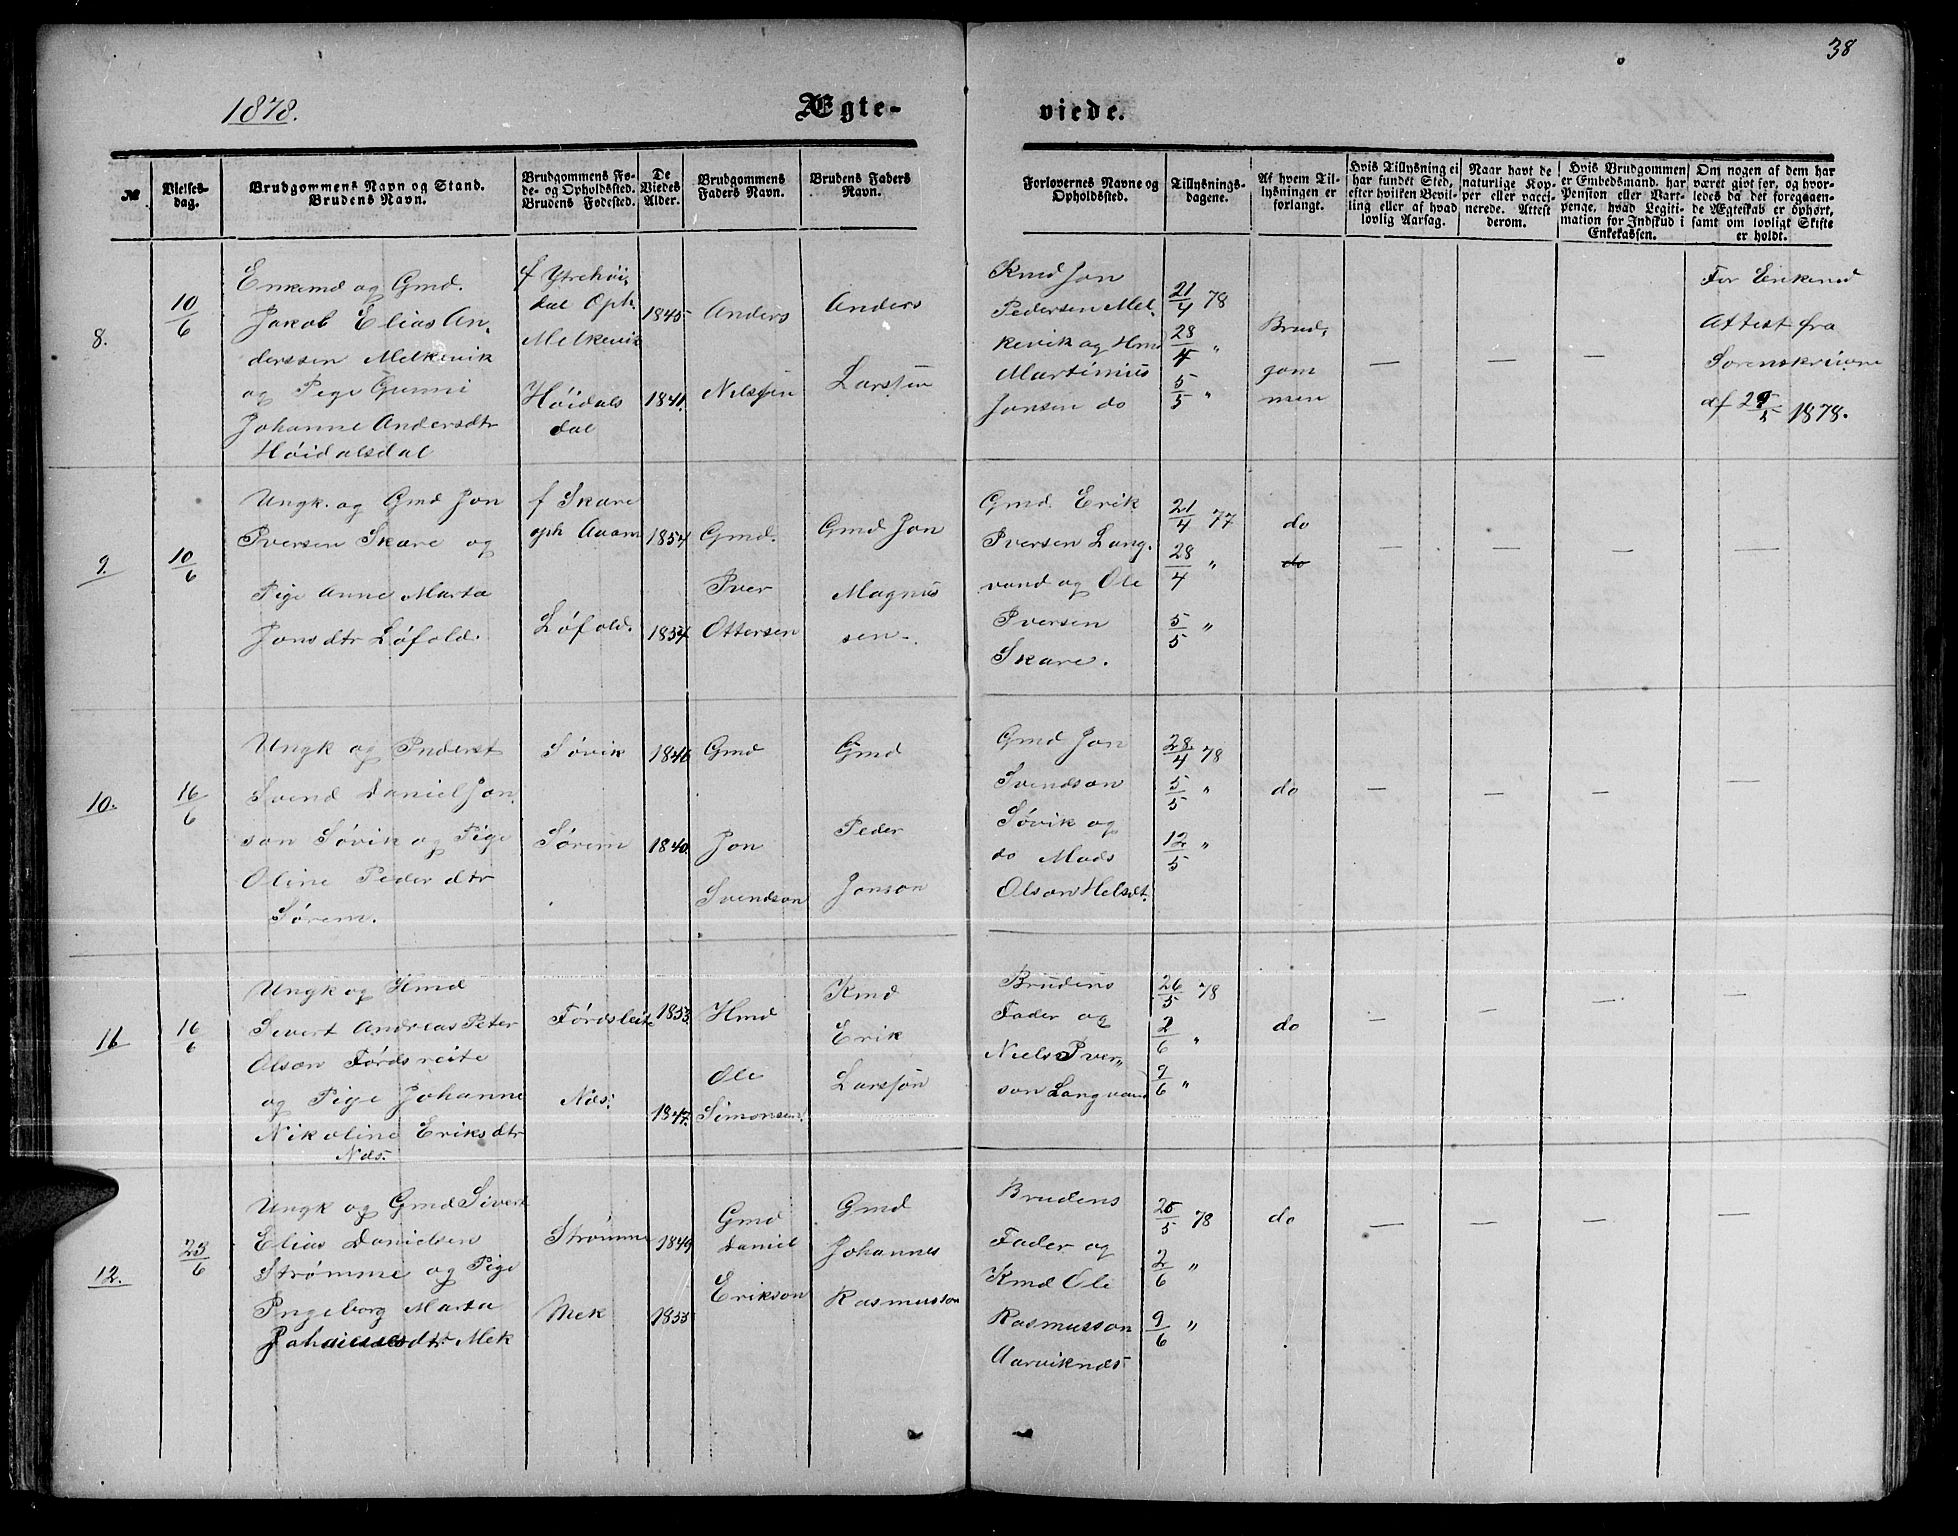 38
1878.
Ægte-
viede.
№
Vielses-
dag.
Brudgommens Navn og Stand.
Brudens Navn.
Brudgommens Fø-
de- og Opholdssted.
Brudens Fødested.
De
Viedes
Alder.
Brudgommens
Faders Navn.
Brudens Faders
Navn.
Forlovernes Navne og
Opholdssted.
Tillysnings-
dagene.
Af hvem Til-
lysningen er
forlangt.
Hvis Tillysning ei
har fundet Sted,
efter hvilken Bevil-
ling eller af hvad
lovlig Aarsag.
Naar havt de
naturlige Kop-
per eller vacci-
nerede. Attest
derom.
Hvis Brudgommen
er Embedsmand, har
Pension eller Vart-
penge, hvad Legiti-
mation for Indskud i
Enkekassen.
Om nogen af dem har
været givt før, og hvor-
ledes da det foregaaen-
de Ægteskab er ophørt,
samt om lovligt Skifte
er holdt.
8.
10/6
Enkemd og Gmd.
Jakob Elias An-
derssen Melkevik
og Pige Gunni
Johanne Andersdtr
Høidalsdal
f Ytrehøi-
dal Oph.
Melkevik
Høidals
dal
1845
1841.
Anders
Nilssen
Anders
Larssen
Kmd Jon
Pedersen Mel-
kevik og Hmd
Martinius
Jonsen do
21/4 78
28/4 "
5/5 "
Brud,
gom
men
—
—
—
For Enkemd
Attest fra
Sorenskrivere
af 29/5 1878.
9.
10/6
Ungk. og Gmd Jon
Iversen Skare og
Pige Anne Marta
Jonsdtr Løfold.
f Skare
oph Aaam
Løfold.
1854
1854.
Gmd.
Iver
Ottersen
Gmd Jon
Magnus
sen.
Gmd. Erik
Iversen Lang-
vand og Ole
Iversen
Skare.
21/4 77
28/4 "
5/5 "
do
do
—
—
—
—
10.
16/6
Ungk og Inderst
Svend Daniel Jon
son Søvik og Pige
Oline Peder dtr
Sørem.
Søvik
Sørem
1846
1840.
Gmd
Jon
Svendson
Gmd
Peder
Jonson
Gmd Jon
Svendson
Søvik og
do Mads
Olson Helset.
28/4 78
5/5 "
12/5 "
do
—
—
—
—
11
16/6
Ungk og Hmd
Sivert Andreas Peter
Olsen Førdsreite
og Pige Johanne
Nikoline Eriksdtr
Næs.
Førdsleite
Næs.
1853.
1847.
Hmd
Ole
Simonsen.
Kmd
Erik
Larssøn
Brudens
Fader og
Niels Iver,
son Langvand
26/5 78
2/6 "
9/6 "
do
—
—
—
—
12.
23/6
Ungk og Gmd Sivert
Elias Danielsen
Strømme og Pige
Ingeborg Marta
Johannesdtr Mek
Strømme
Mek
1849
1855
Gmd
Daniel
Erikson
Gmd
Johannes
Rasmusson
Brudens
Fader og
Kmd Ole
Rasmusson
Aarviknæs
26/5 78
2/6 "
9/6 "
do
—
—
—
—